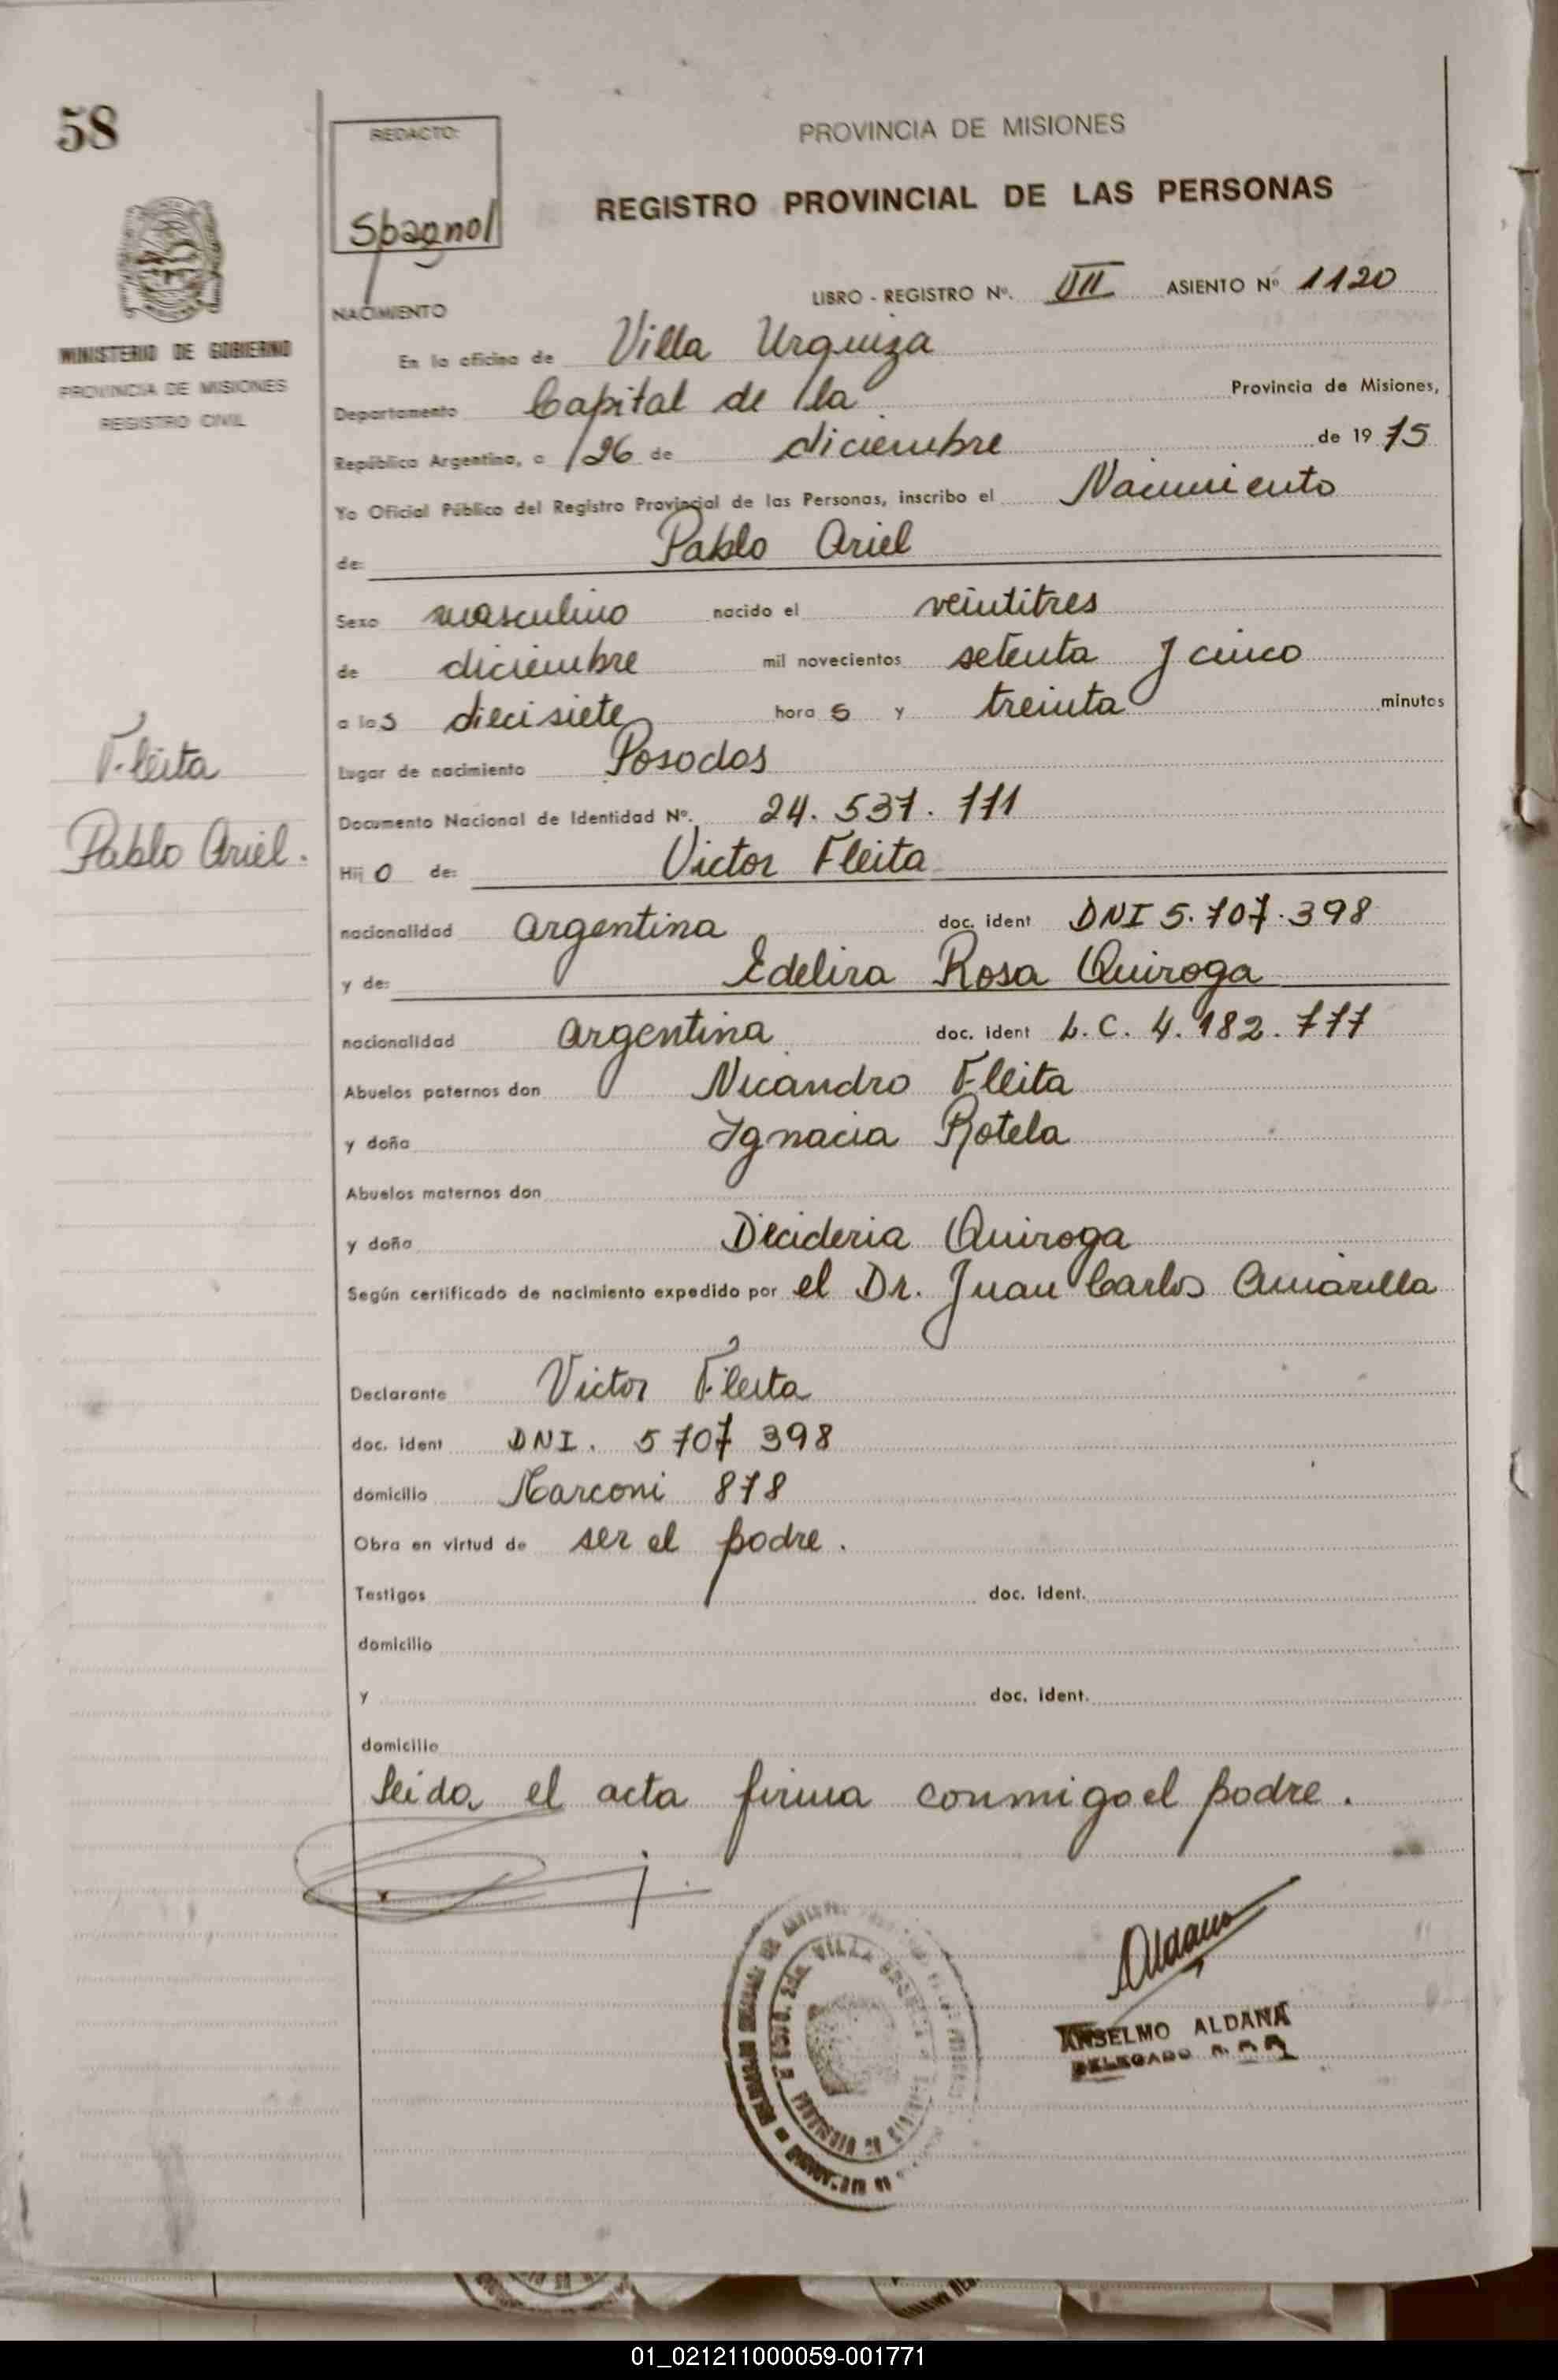 58
REDACTO:
Spagnol
PROVINCIA DE MISIONES
REGISTRO PROVINCIAL DE LAS PERSONAS
MINISTERIO DE GOBIERNO
PROVINCIA DE MISIONES
REGISTRO CIVIL
LIBRO - REGISTRO Nº. VII ASIENTO Nº 1120
NACIMIENTO
En la oficina de Villa Urquiza
Departamento Capital de la Provincia de Misiones,
República Argentina, a 26 de diciembre de 19 75
Yo Oficial Público del Registro Provincial de las Personas, inscribo el Nacimiento
de: Pablo Ariel
Sexo masculino nacido el veintitres
de diciembre mil novecientos setenta y cinco
a las diecisiete hora s y treinta minutos
Lugar de nacimiento Posadas
Fleita
Pablo Ariel.
Documento Nacional de Identidad Nº. 24.537.771
Hij o de: Victor Fleita
nacionalidad argentina doc. ident DNI 5.707.398
y de: Edelira Rosa Quiroga
nacionalidad argentina doc. ident L.C. 4.182.777
Abuelos paternos don Nicandro Fleita
y doña Ignacia Rotela
Abuelos maternos don
y doña Decideria Quiroga
Según certificado de nacimiento expedido por el Dr. Juan Carlos Amarilla
Declarante Victor Fleita
doc. ident DNI. 5 707 398
domicilio Marconi 878
Obra en virtud de ser el padre.
Testigos doc. ident.
domicilio
y doc. ident.
domicilio
Leida el acta firma conmigo el padre.
Aldana
ANSELMO ALDANA
DELEGADO
01_021211000059-001771